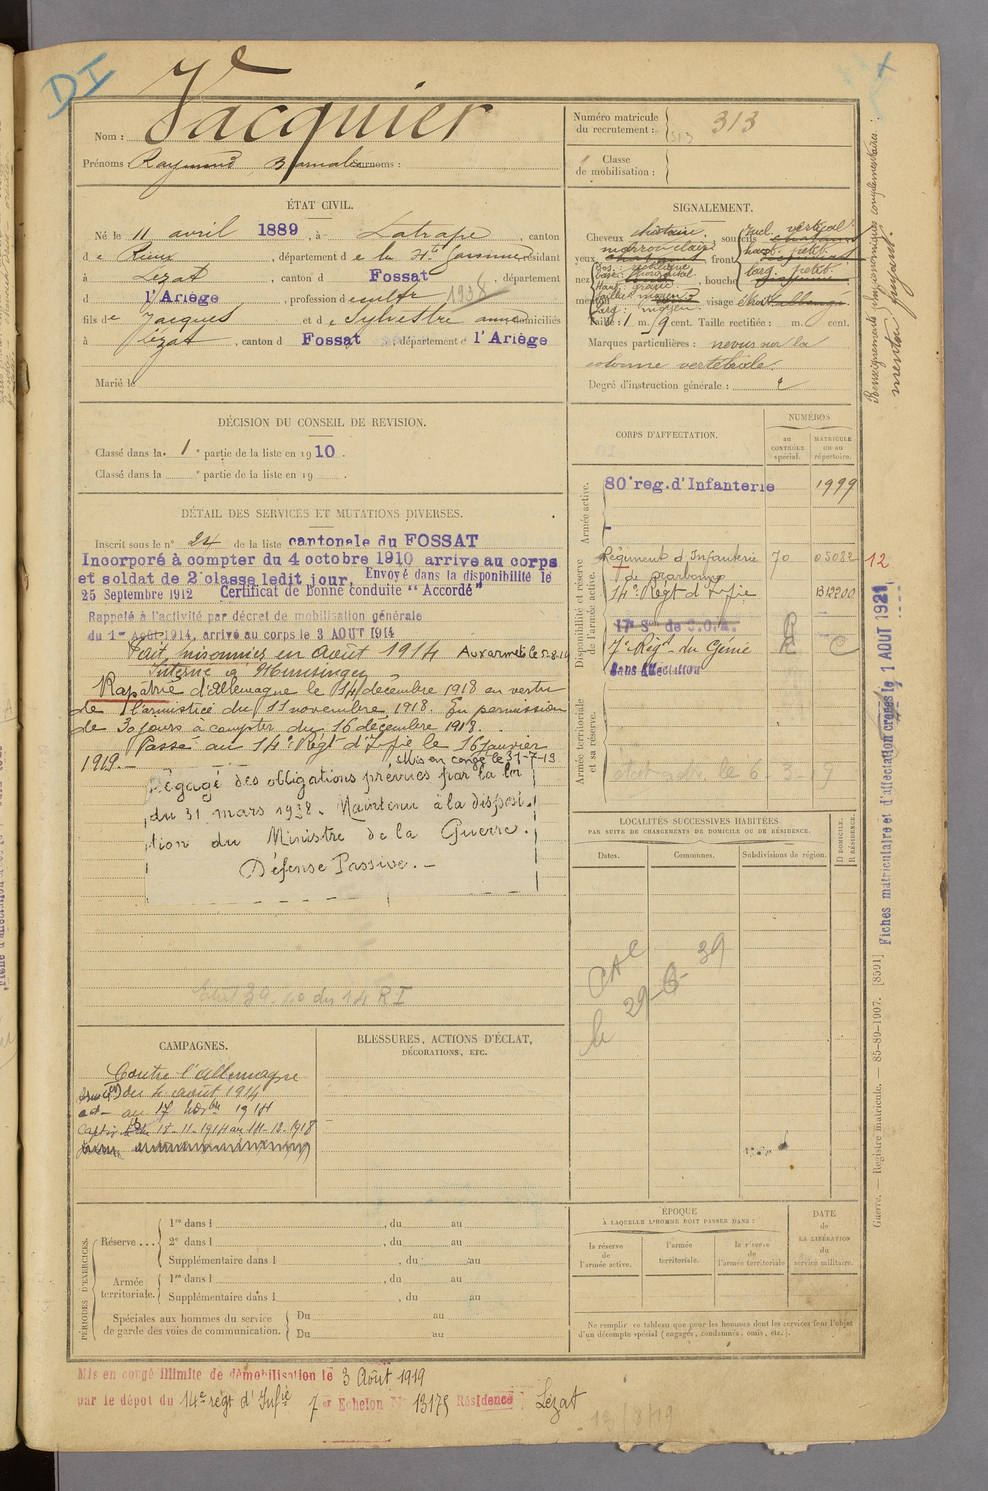 DI
Nom : Vacquier
Prénoms : Raymond Surnoms :
Numéro matricule
du recrutement : 313
Classe
de mobilisation :
ÉTAT CIVIL.
Né le 11 avril 1889, à Latrape, canton
de Rieux, département de la Hte Garonne résidant
à Lézat, canton d Fossat, département
d l'Ariège, profession de cultr 1938
fils de Jacques et de Sylvestre domiciliés
à Lézat, canton d Fossat, département d l'Ariège
Marié le
SIGNALEMENT.
Cheveux châtains. sourcils
yeux marron clair front
nez bouche
menton visage
Taille : 1 m. cent. Taille rectifiée : m. cent.
Marques particulières : nevus sur la
colonne vertébrale.
Degré d'instruction générale : 2
Renseignements physionomiques complémentaires :
menton fuyant.
DÉCISION DU CONSEIL DE REVISION.
Classé dans la 1e partie de la liste en 1910.
Classé dans la e partie de la liste en 19 .
CORPS D'AFFECTATION.
NUMÉROS
au
CONTRÔLE
spécial.
MATRICULE
ou au
répertoire.
Armée active.
80e reg. d'Infanterie 1999
Disponibilité et réserve
de l'armée active.
Régiment d'Infanterie 70 05082 12
de Narbonne
14e Régt d'Infie 1312200
17e Son de C.O.A.
7e Régt du Génie
Sans Affectation
Armée territoriale
et sa réserve.
le 6-3-19
DÉTAIL DES SERVICES ET MUTATIONS DIVERSES.
Inscrit sous le n° 24 de la liste cantonale du FOSSAT
Incorporé à compter du 4 octobre 1910 arrivé au corps
et soldat de 2e classe ledit jour. Envoyé dans la disponibilité le
25 Septembre 1912 Certificat de Bonne conduite "Accordé"
Rappelé à l'activité par décret de mobilisation générale
du 1er Août 1914, arrivé au corps le 3 AOUT 1914
Fait prisonnier en août 1914 Aux armées le 5-8-14
Interné à Munsingen
Rapatrié d'Allemagne le 14 décembre 1918 en vertu
de l'armistice du 11 novembre 1918. En permission
de 30 jours à compter du 16 décembre 1918.
Passé au 14e Régt d'Infie le 16 janvier
1919.— Mis en congé le 31-7-19
Dégagé des obligations prévues par la loi
du 31 mars 1928. Maintenu à la disposi-
tion du Ministre de la Guerre.
Défense Passive.—
du 14 RI
LOCALITÉS SUCCESSIVES HABITÉES
PAR SUITE DE CHANGEMENTS DE DOMICILE OU DE RÉSIDENCE.
Dates. Communes. Subdivisions de région. D DOMICILE. R RÉSIDENCE.
39
29-6-
Fiches matriculaire et d'affectation créées le 1 AOUT 1921
Guerre. — Registre matricule. — 85-89-1907. [8591]
CAMPAGNES.
Contre l'Allemagne
du 4 août 1914
au 17 1914
18-11-1914 au 14-12-1918
BLESSURES, ACTIONS D'ÉCLAT,
DÉCORATIONS, ETC.
PÉRIODES D'EXERCICES.
Réserve ...
1re dans l , du au
2e dans l , du au
Supplémentaire dans l , du au
Armée
territoriale.
1re dans l , du au
Supplémentaire dans l , du au
Spéciales aux hommes du service
de garde des voies de communication.
Du au
Du au
ÉPOQUE
À LAQUELLE L'HOMME DOIT PASSER DANS :
la réserve
de
l'armée active.
l'armée
territoriale.
la réserve
de
l'armée territoriale
DATE
de
LA LIBÉRATION
du
service militaire.
Ne remplir ce tableau que pour les hommes dont les services font l'objet
d'un décompte spécial (engagés, condamnés, omis, etc.).
Mis en congé illimité de démobilisation le 3 Août 1919
par le dépôt du 14e régt d'Infie 7e Echelon N° 13175 Résidence Lézat
13/8/19